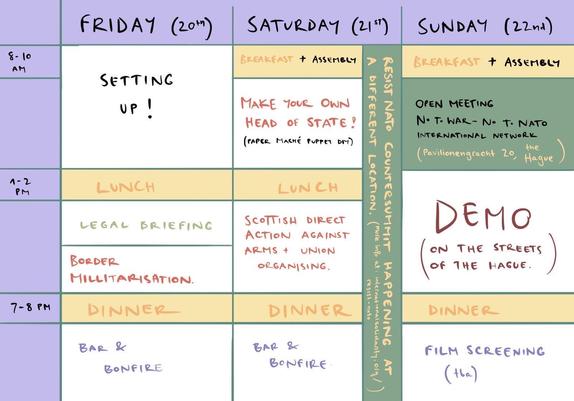 FRIDAY (20th)
SATURDAY (21st)
SUNDAY (22nd)
8-10
AM
SETTING
UP!
BREAKFAST + ASSEMBLY
BREAKFAST + ASSEMBLY
MAKE YOUR OWN
HEAD OF STATE!
(PAPER MACHÉ PUPPET DIY)
RESIST NATO COUNTERSUMMIT HAPPENING AT
A DIFFERENT LOCATION. (more info at: internationalsolidarity.org/
resist-nato)
OPEN MEETING
No T. WAR - No T. NATO
INTERNATIONAL NETWORK
(Pavilioensgracht 20, the
Hague)
1-2
PM
LUNCH
LUNCH
LEGAL BRIEFING
BORDER
MILLITARISATION.
SCOTTISH DIRECT
ACTION AGAINST
ARMS + UNION
ORGANISING.
DEMO
(ON THE STREETS
OF THE HAGUE.)
7-8 PM
DINNER
DINNER
DINNER
BAR &
BONFIRE
BAR &
BONFIRE
FILM SCREENING
(tba)